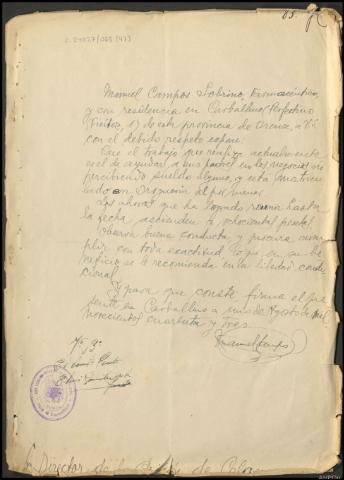 C. 24027/003 (47)
85.
Manuel Campos Sobrino, Farmacéutico,
y con residencia en Carballino (Perfectino
Viéitez, 1) de esta provincia de Orense, a Vd.
con el debido respeto expone
Que el trabajo que realiza actualmente
es el de ayudar a sus padres en los negocios no
percibiendo sueldo alguno, y está
en Droguería al por menor.
Los ahorros que ha logrado reunir hasta
la fecha ascienden a
Observa buena conducta y procura cum-
plir con toda exactitud, lo que en su be-
neficio se le recomienda en la libertad condi-
cional.
Y para que conste firma el pre-
sente en Carballino a de Agosto de mil
novecientos cuarenta y tres.
Manuel Campos
Vº Bº
Director de la de